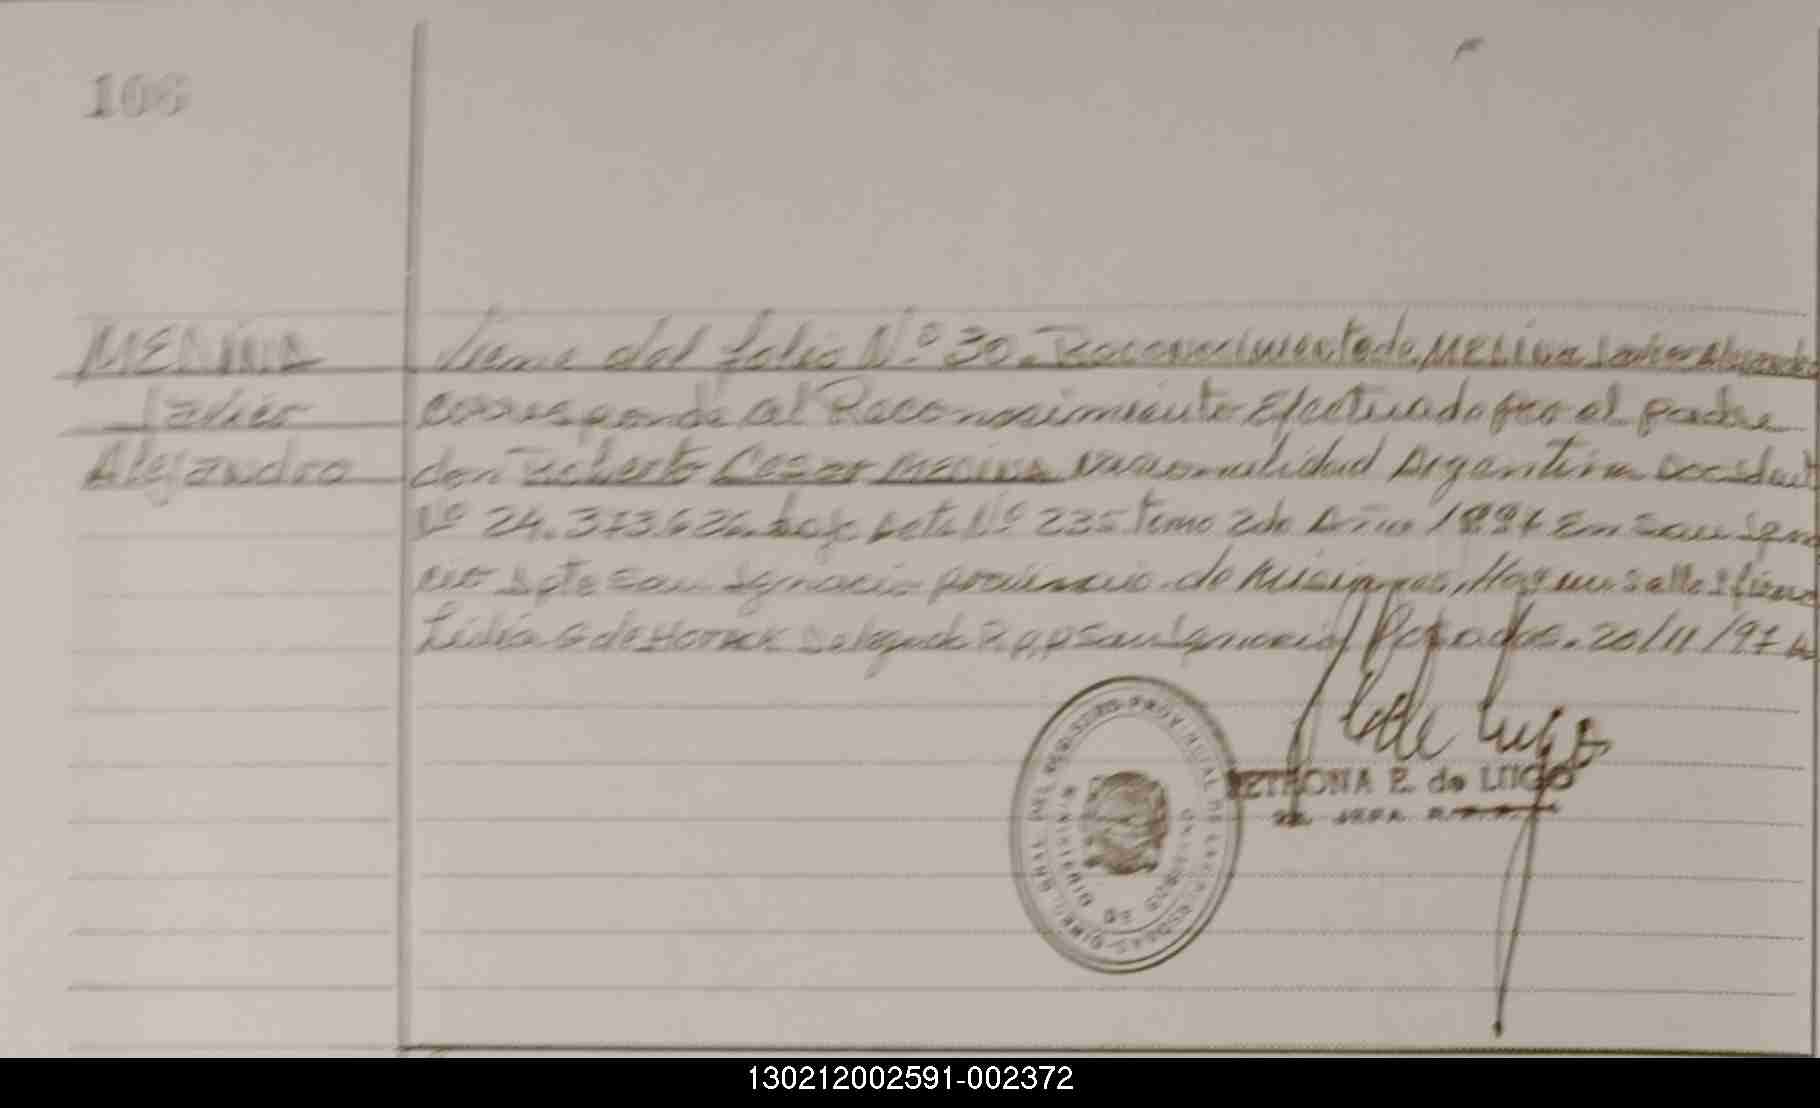 106
MEDINA
Javier
Alejandro
Viene del folio Nº 30. Reconocimiento de MEDINA Javier Alejandro
corresponde al Reconocimiento Efectuado por el padre
don Roberto Cesar MEDINA Nacionalidad Argentina
Nº 24.373.626 bajo acta Nº 235 tomo 2do Año 1997 En San Igna
cio Dpto San Ignacio provincia de Misiones, Hay un Sello y firma
Lidia G de Delegada R.P.P San Ignacio Posadas. 20/11/97
PETRONA E. de LUGO
DIREC. GRAL. DEL REGISTRO PROVINCIAL DE LAS PERSONAS
MINISTERIO DE GOBIERNO
130212002591-002372